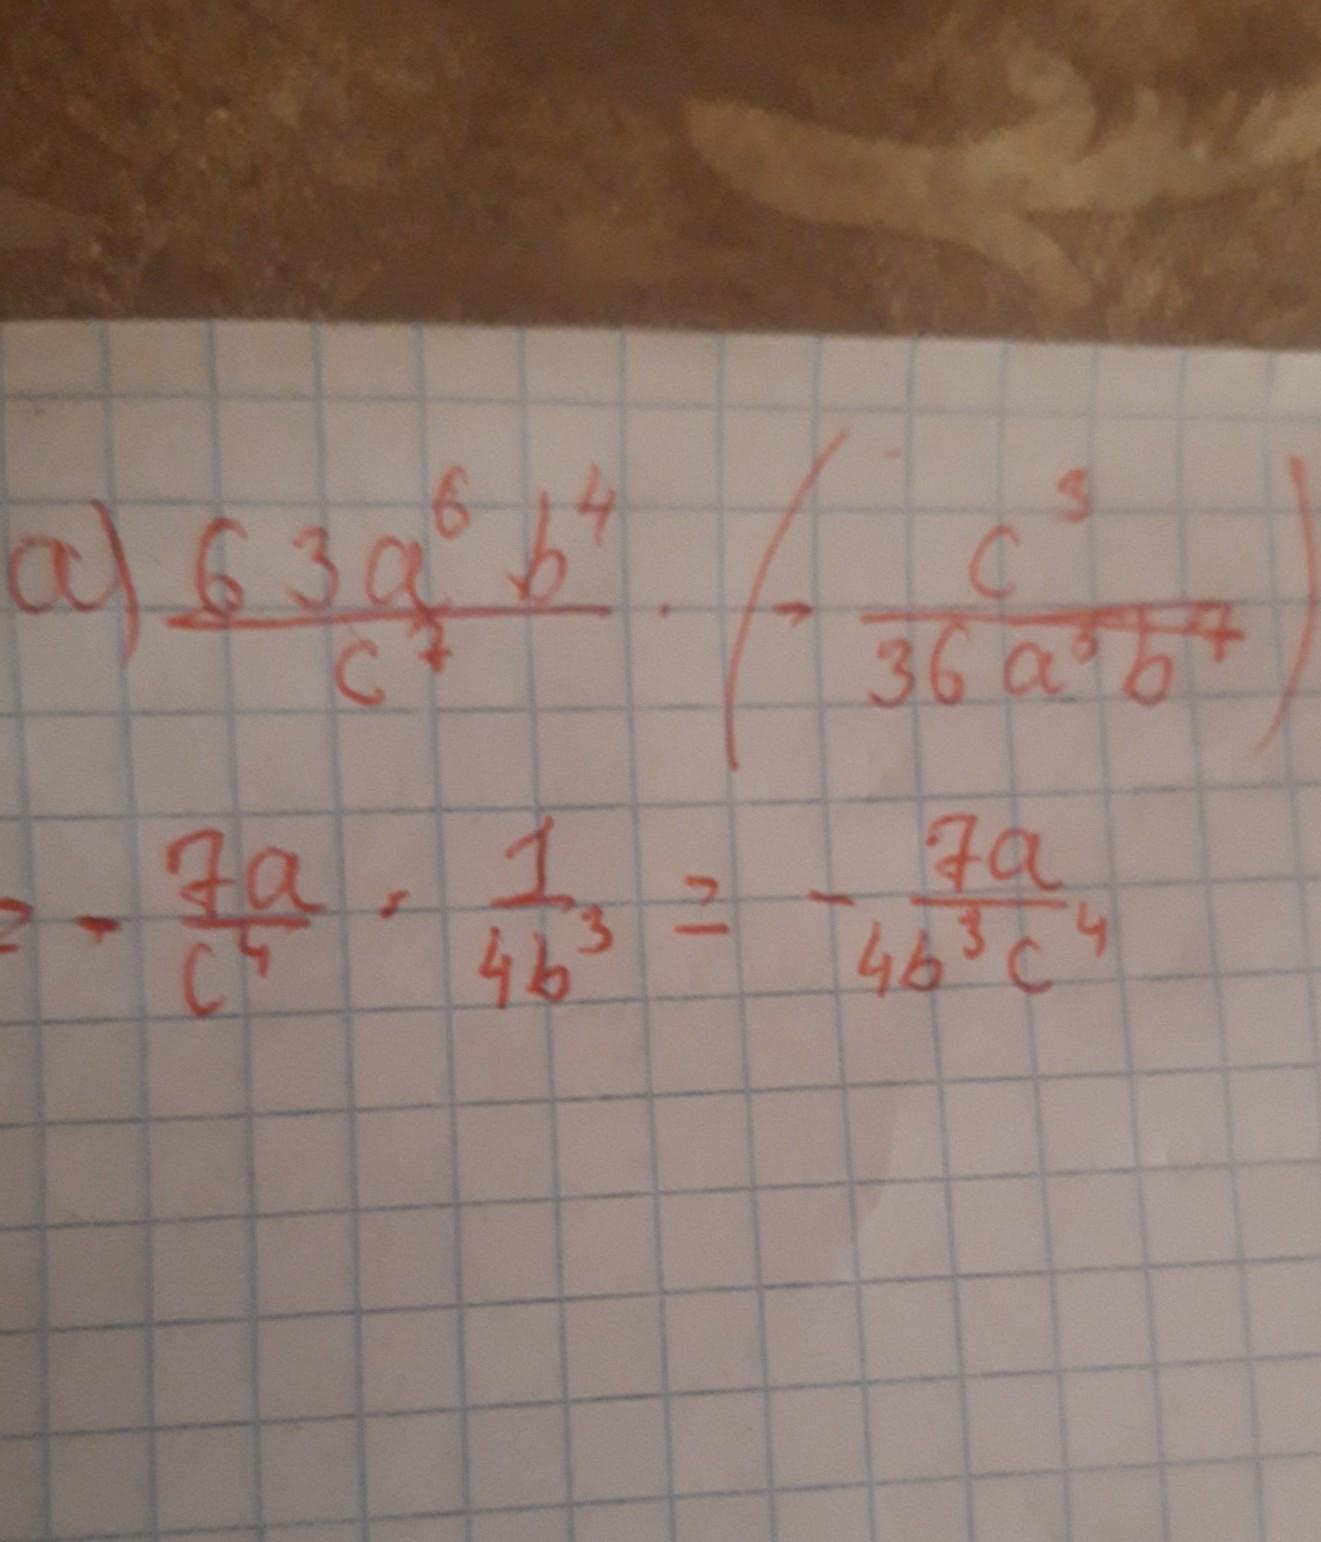 а) 63a⁶b⁴/c⁷ · (- c³/36a⁵b⁷)
= - 7a/c⁴ · 1/4b³ = - 7a/4b³c⁴